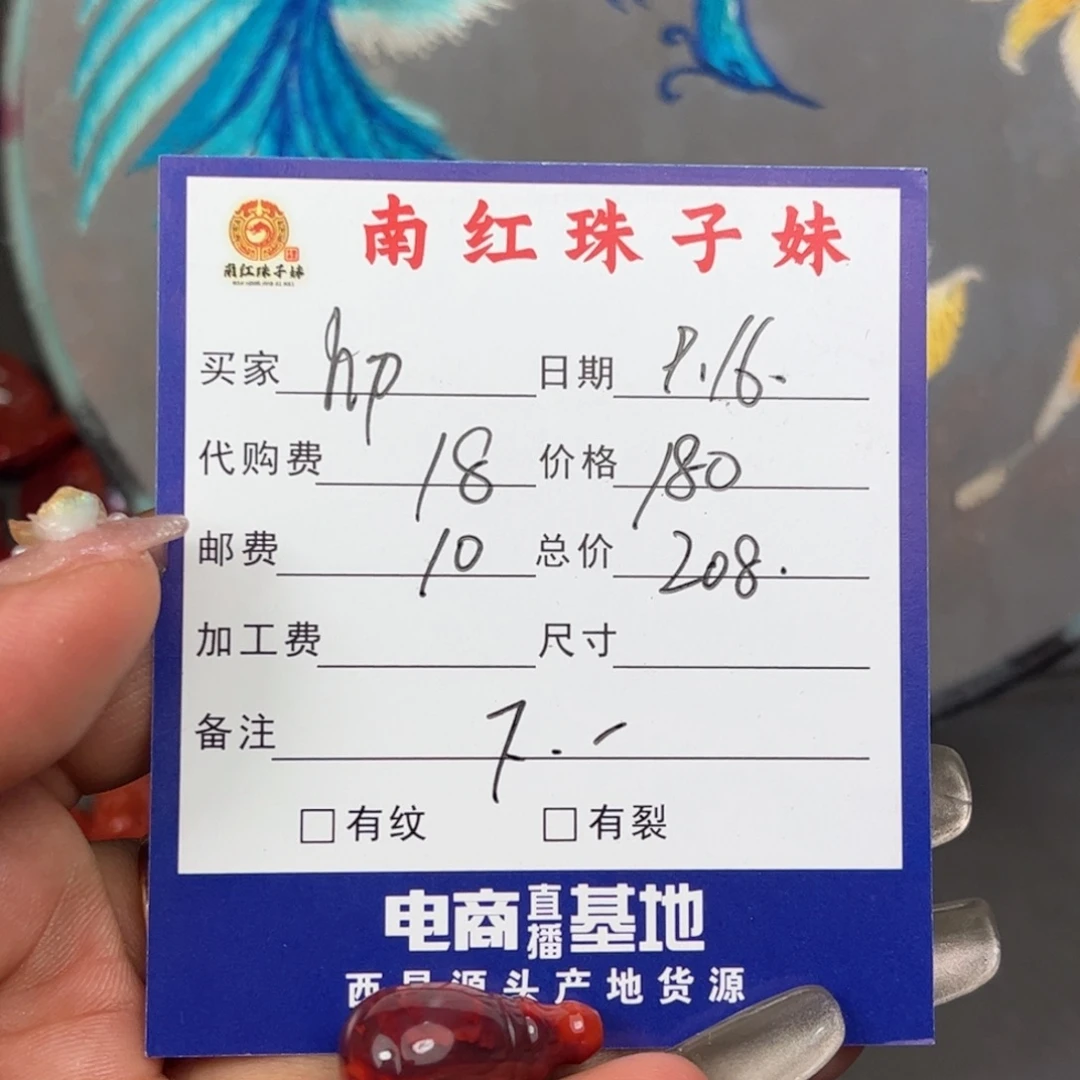 南红珠子妹
南红珠子妹
买家 hp 日期 8.16.
代购费 18 价格 180
邮费 10 总价 208.
加工费 尺寸
备注 7.-
□有纹 □有裂
电商直播基地
西昌源头产地货源